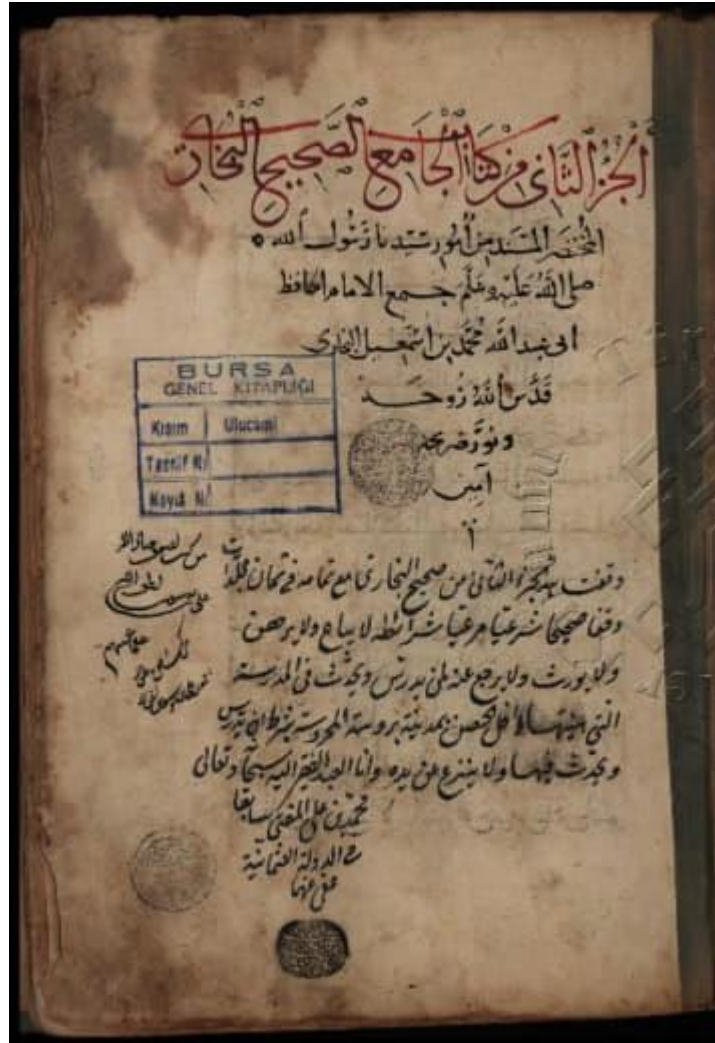 الجزء الثاني من كتاب الجامع الصحيح البخاري
المختصر المسند من أمور سيدنا رسول الله
صلى الله عليه وسلم جمع الامام الحافظ
ابى عبد الله محمد بن اسمعيل البخاري
قدس الله روحه
ونور ضريحه
آمين
BURSA
GENEL KİTAPLIĞI
Kısım Ulucami
Tasnif N.
Kayıt N.
وقفت هذا الجزء الثاني من صحيح البخاري مع تمامه في ثمان مجلدات
وقفا صحيحا شرعيا مرعيا شرائطه لا يباع ولا يرهن
ولا يورث ولا يرجع عنه لمن يدرس ويحدث في المدرسة
التي بنيتها داخل الحصن بمدينة بروسة المحروسة بشرط ان يدرس
ويحدث فيها ولا ينزع عن يده وانا العبد الفقير اليه سبحانه وتعالى
محمد بن على المفتى سابقا
في الدولة العثمانية
عفى عنهما